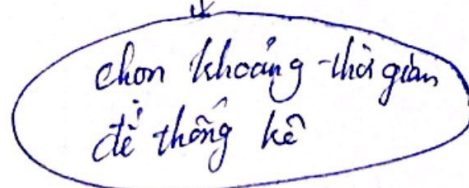 chọn khoảng thời gian
để thống kê